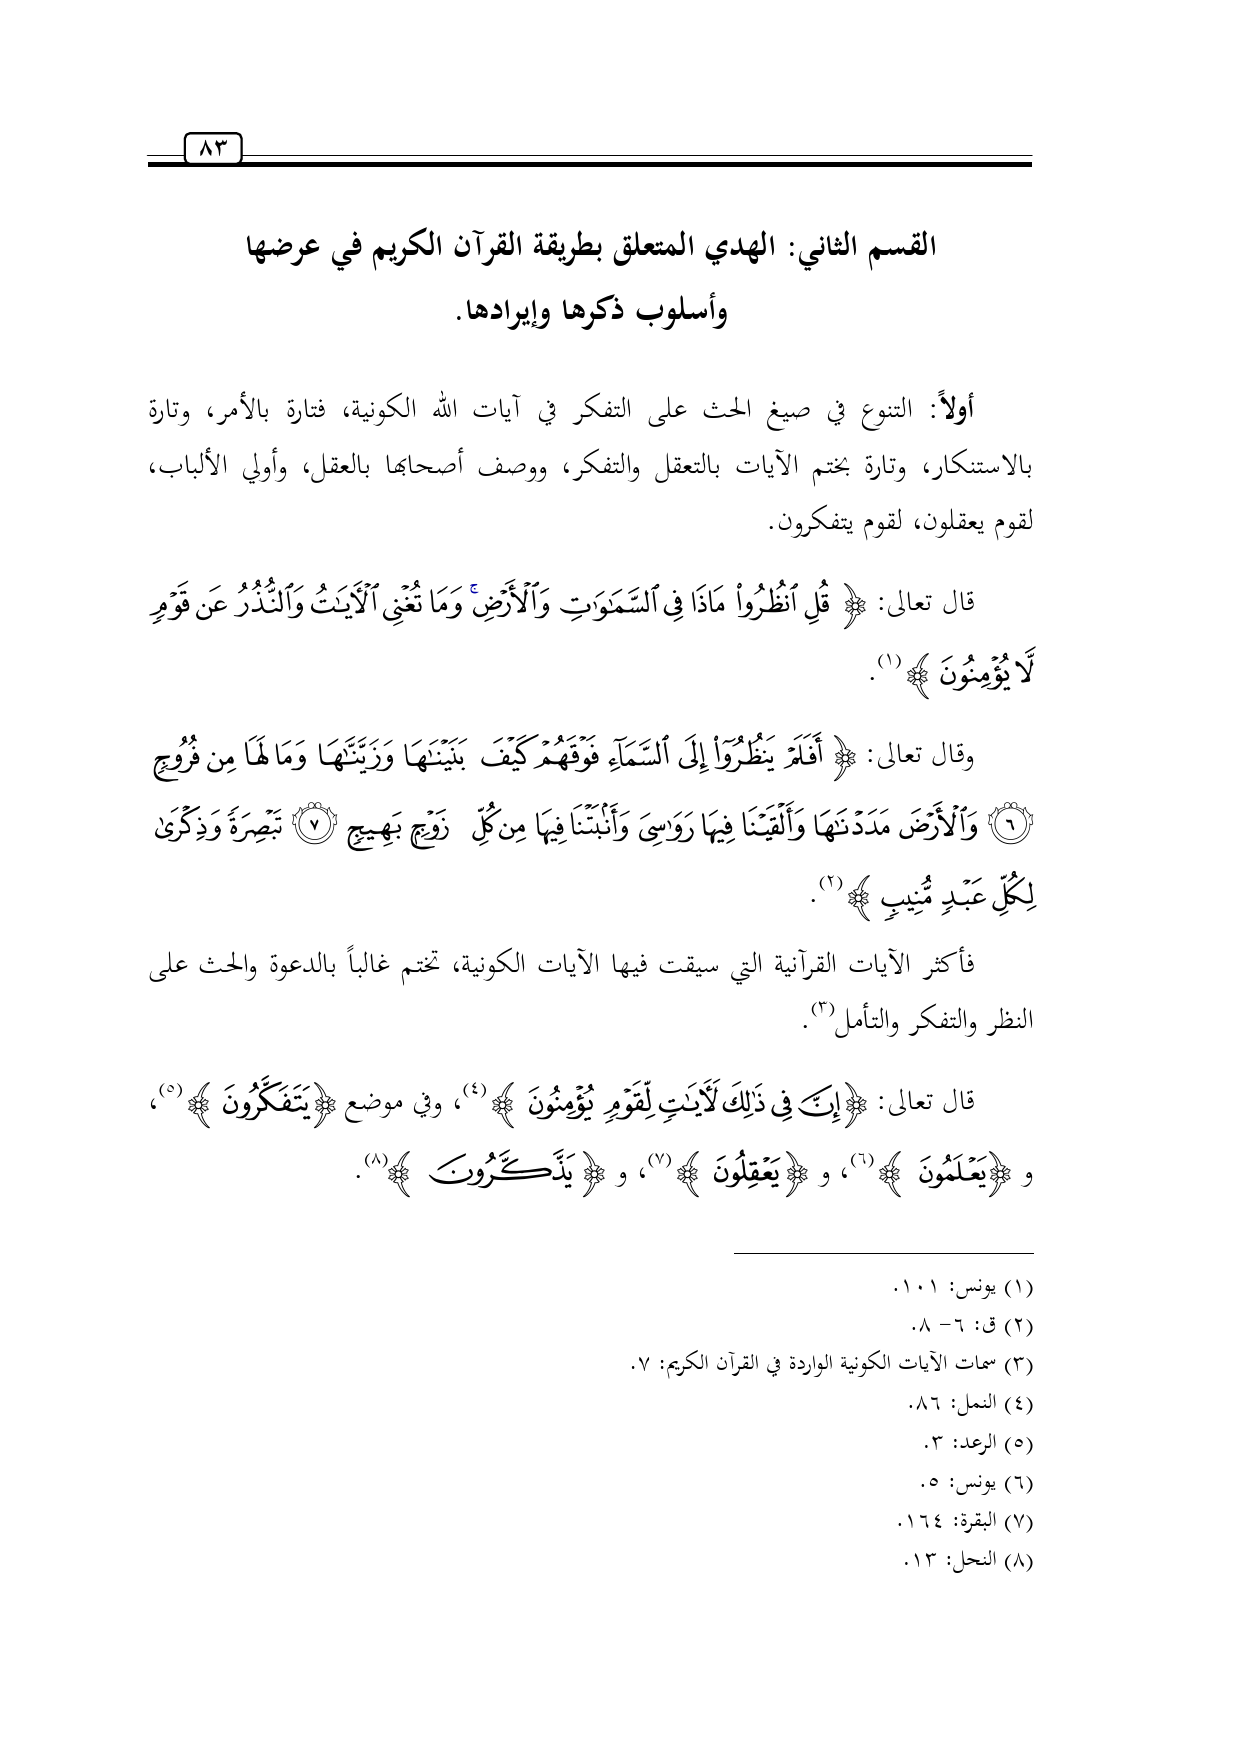 ٨٣
القسم الثاني: الهدي المتعلق بطريقة القرآن الكريم في عرضها
وأسلوب ذكرها وإيرادها.
أولاً: التنوع في صيغ الحث على التفكر في آيات الله الكونية، فتارة بالأمر، وتارة
بالاستنكار، وتارة بختم الآيات بالتعقل والتفكر، ووصف أصحابها بالعقل، وأولي الألباب،
لقوم يعقلون، لقوم يتفكرون.
قال تعالى: ﴿ قُلِ ٱنظُرُوا۟ مَاذَا فِى ٱلسَّمَـٰوَٰتِ وَٱلْأَرْضِ ۚ وَمَا تُغْنِى ٱلْـَٔايَـٰتُ وَٱلنُّذُرُ عَن قَوْمٍ
لَّا يُؤْمِنُونَ ﴾(١).
وقال تعالى: ﴿ أَفَلَمْ يَنظُرُوٓا۟ إِلَى ٱلسَّمَآءِ فَوْقَهُمْ كَيْفَ بَنَيْنَـٰهَا وَزَيَّنَّـٰهَا وَمَا لَهَا مِن فُرُوجٍ
٦ وَٱلْأَرْضَ مَدَدْنَـٰهَا وَأَلْقَيْنَا فِيهَا رَوَٰسِىَ وَأَنۢبَتْنَا فِيهَا مِن كُلِّ زَوْجٍۭ بَهِيجٍ ٧ تَبْصِرَةً وَذِكْرَىٰ
لِكُلِّ عَبْدٍ مُّنِيبٍ ﴾(٢).
فأكثر الآيات القرآنية التي سيقت فيها الآيات الكونية، تختم غالباً بالدعوة والحث على
النظر والتفكر والتأمل(٣).
قال تعالى: ﴿إِنَّ فِى ذَٰلِكَ لَـَٔايَـٰتٍ لِّقَوْمٍ يُؤْمِنُونَ ﴾(٤)، وفي موضع ﴿يَتَفَكَّرُونَ ﴾(٥)،
و ﴿يَعْلَمُونَ ﴾(٦)، و ﴿يَعْقِلُونَ ﴾(٧)، و ﴿يَذَّكَّرُونَ ﴾(٨).
(١) يونس: ١٠١.
(٢) ق: ٦- ٨.
(٣) سمات الآيات الكونية الواردة في القرآن الكريم: ٧.
(٤) النمل: ٨٦.
(٥) الرعد: ٣.
(٦) يونس: ٥.
(٧) البقرة: ١٦٤.
(٨) النحل: ١٣.